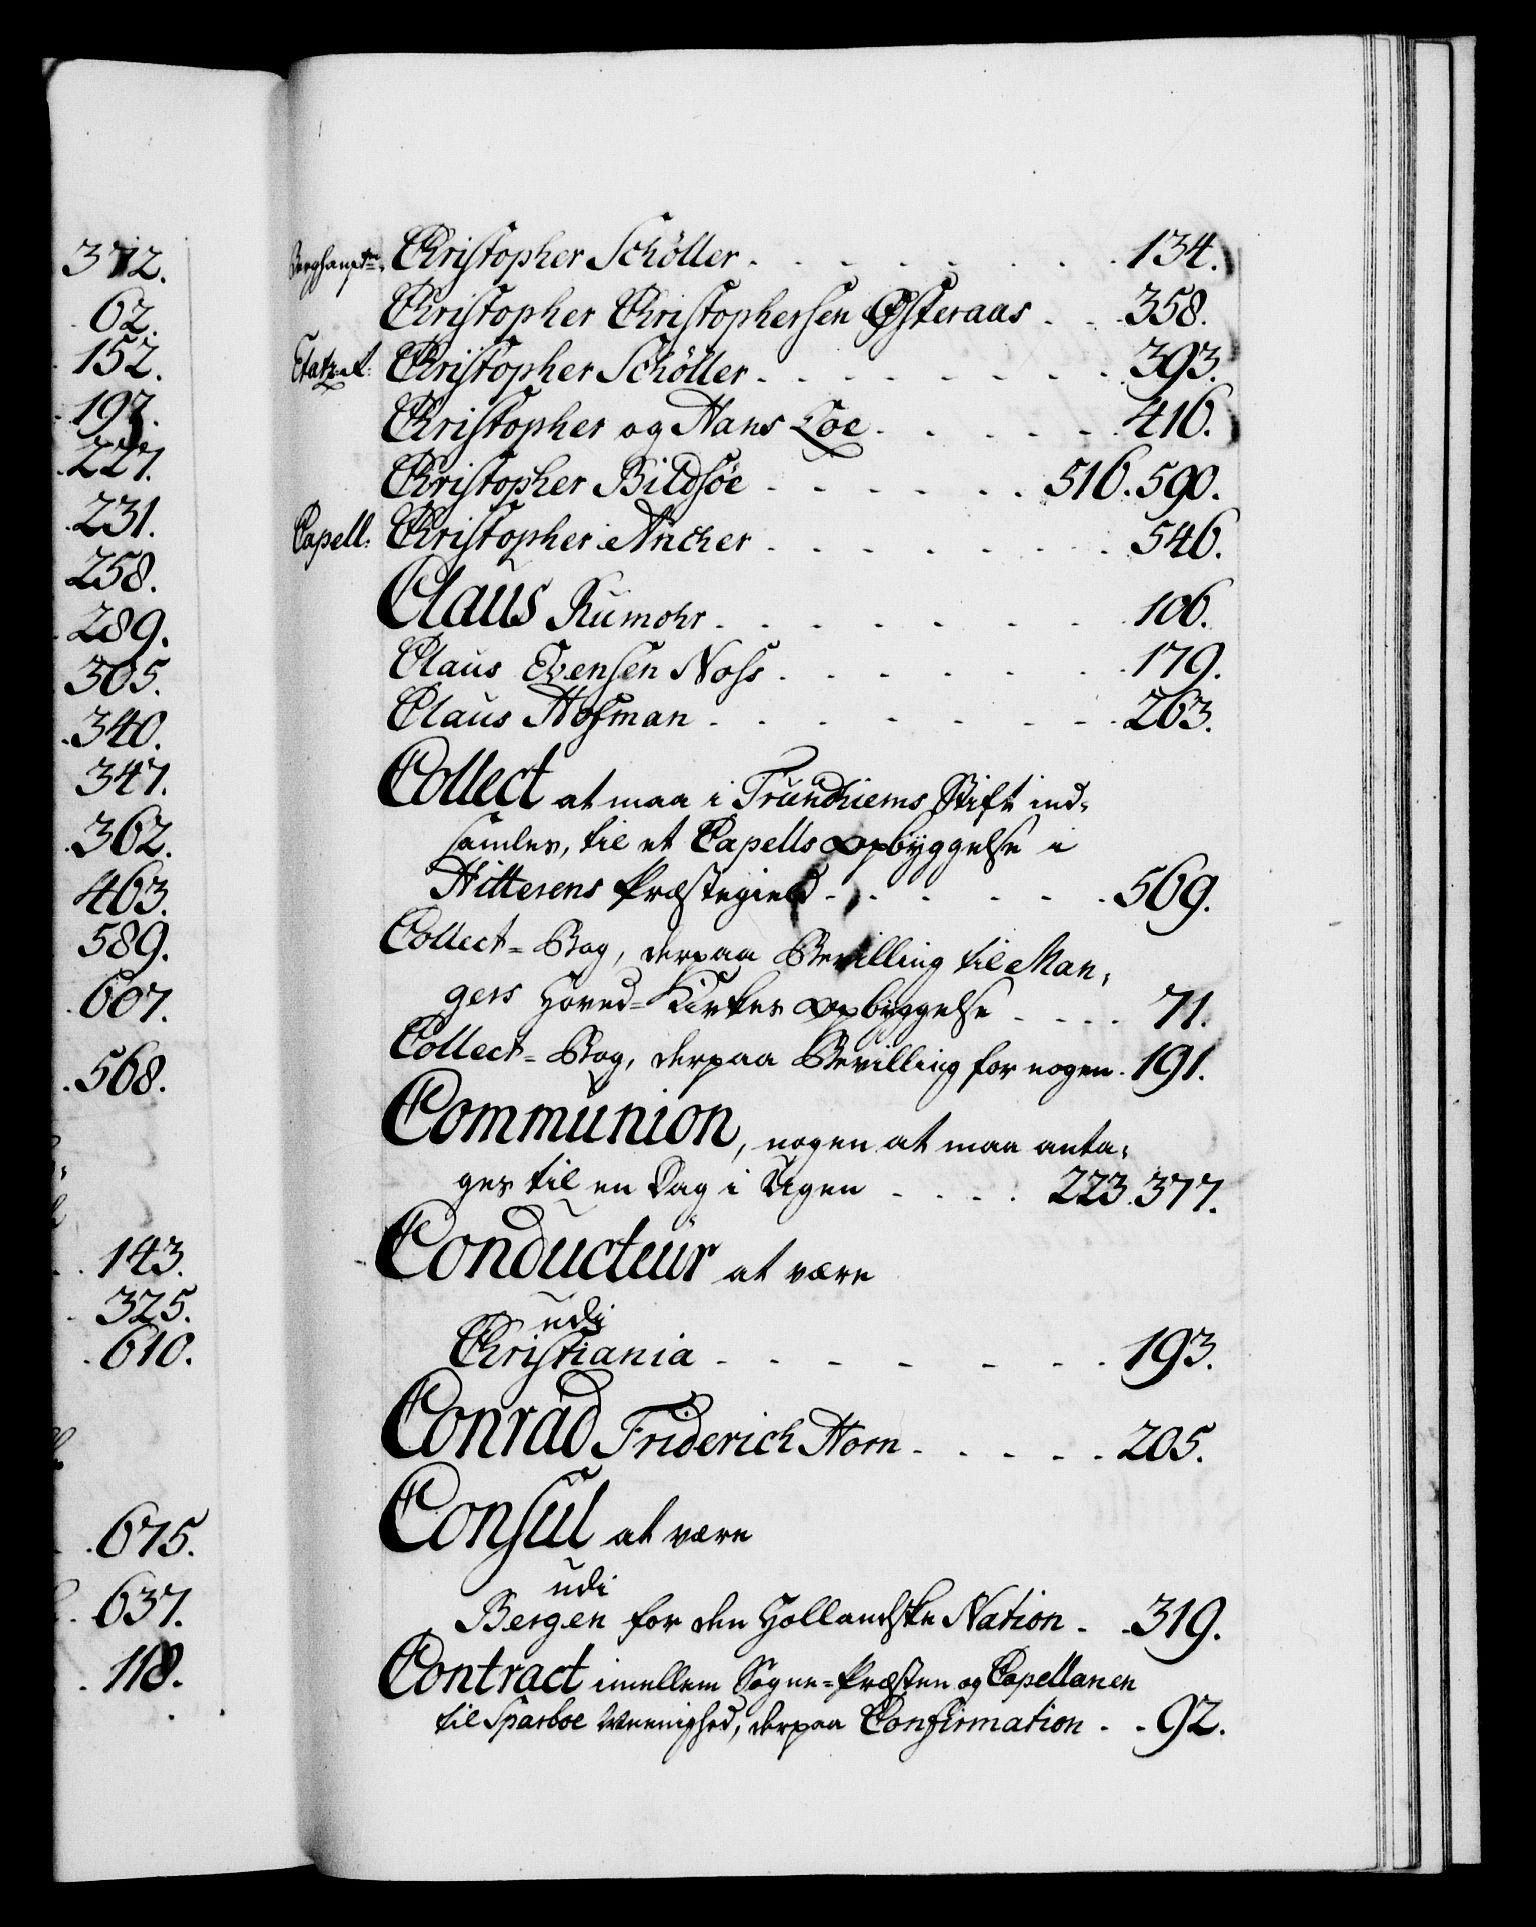 372.
62.
152.
197.
227.
231.
258.
289.
305.
340.
347.
362.
463.
589.
607.
568.
143.
325.
610.
675.
637.
118.
Berghauptm. Christopher Schöller - - - - - - - 134.
Christopher Christophersen Østeraas - - 358.
Etatz-R: Christopher Schöller - - - - - - - 393.
Christopher og Hans Loe - - - - - 416.
Christopher Bildsøe - - - - - 516. 590.
Capell: Christopher Ancher - - - - - - 546.
Claus Rumohr - - - - - - - 106.
Claus Evensen Noss - - - - - - 179.
Claus Hofman - - - - - - - 263.
Collect at maa i Trundhiems Stift ind-
samles, til et Capells Opbyggelse i
Hitterens Præstegield - - - - - 569.
Collect-Bog, derpaa Bevilling til Man-
gers Hoved-Kirkes Opbyggelse - - - - 71.
Collect-Bog, derpaa Bevilling for nogen - 191.
Communion, nogen at maa anta-
ges til en Dag i Ugen - - - - 223. 377.
Conducteur at være
udi
Christiania - - - - - - - 193.
Conrad Friderich Horn - - - - - 205.
Consul at være
udi
Bergen for den Hollandske Nation - - 319.
Contract imellem Sogne-Præsten og Capellanen
til Sparboe Menighed, derpaa Confirmation - - 92.